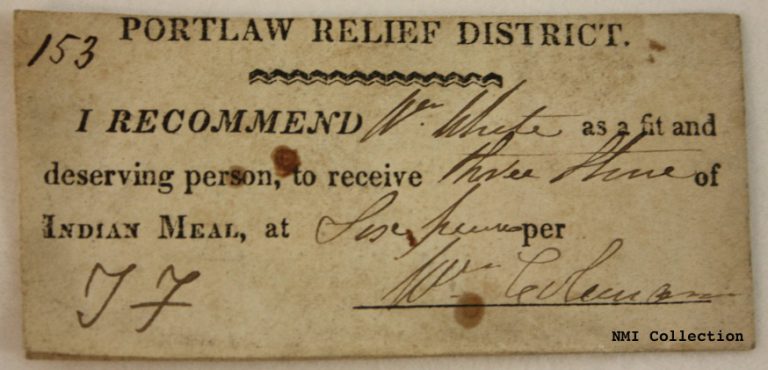 153
PORTLAW RELIEF DISTRICT.
I RECOMMEND Wm White as a fit and
deserving person, to receive three Stone of
INDIAN MEAL, at Six pence per
Wm Coleman
NMI Collection